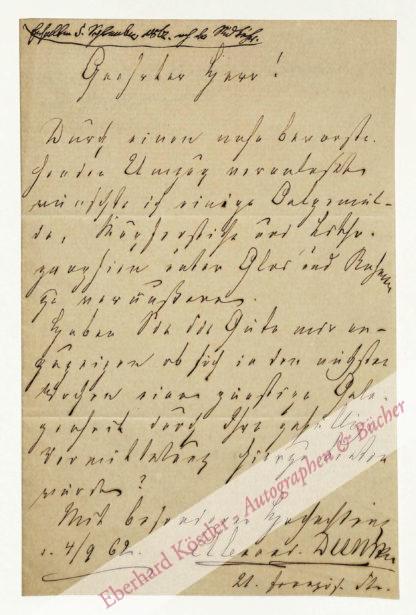 Geehrter Herr!
Durch einen nahe bevorste-
henden Umzug veranlaßt
wünschte ich einige Oelgemäl-
de, Kupferstiche und Litho-
graphien unter Glas und Rahmen
zu veräußern.
Haben Sie die Güte mir an-
zuzeigen ob sich in den nächsten
Wochen eine günstige Gele-
genheit durch Ihre gefällige
Vermittelung hierzu bieten
würde?
Mit besonderer Hochachtung
4/9 62.
21. Französ. Str.
Eberhard Köstler - Autographen & Bücher